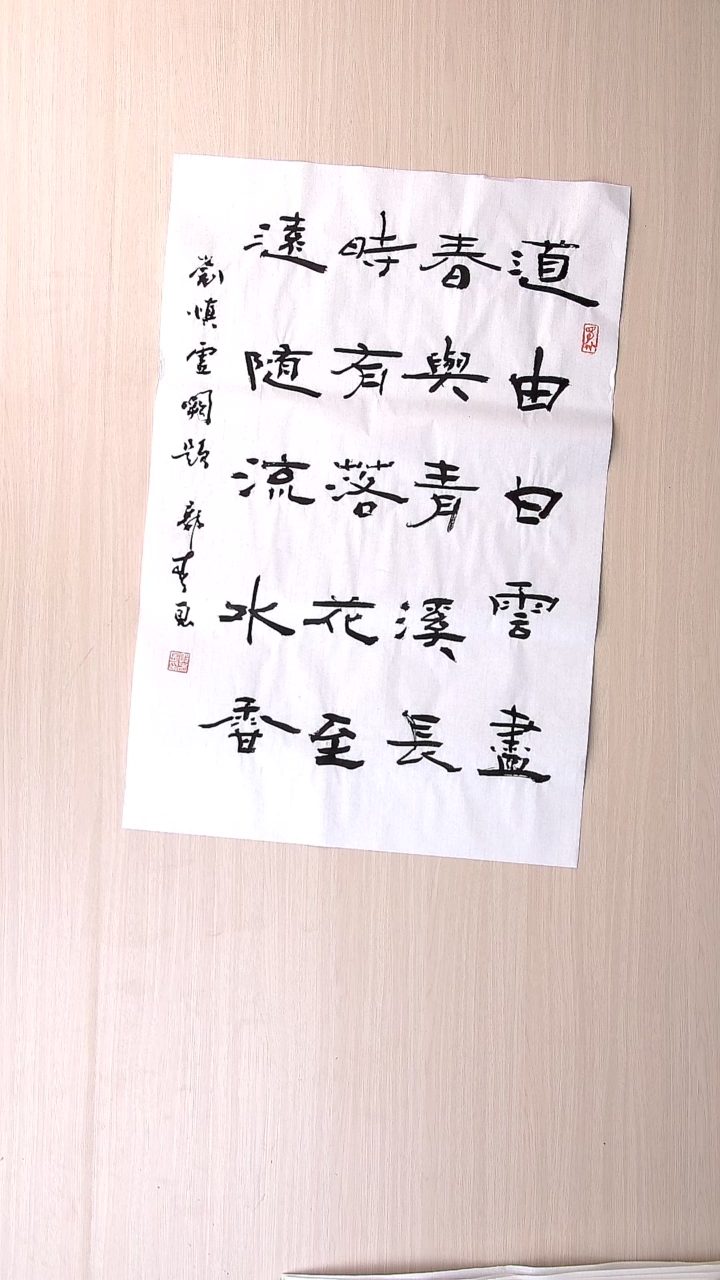 道由白雲盡
春與青溪長
時有落花至
遠隨流水香
劉慎虛闕題